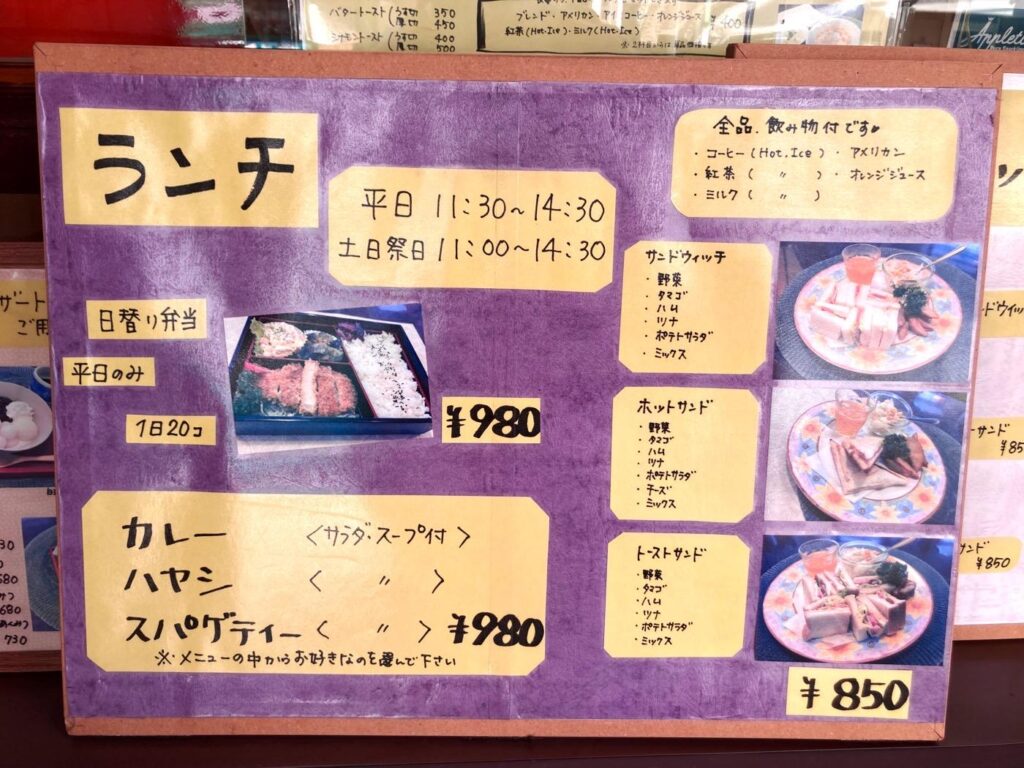 バタートースト(うす切 350
厚切 450
シナモントースト(うす切 400
厚切 500
ブレンド・アメリカン・アイスコーヒー・オレンジジュース ¥400
紅茶(Hot.Ice)・ミルク(Hot.Ice)
ランチ
平日 11:30〜14:30
土日祭日 11:00〜14:30
全品、飲み物付です
・コーヒー(Hot.Ice)・アメリカン
・紅茶( 〃 )・オレンジジュース
・ミルク( 〃 )
日替り弁当
平日のみ
1日20コ
¥980
カレー 〈サラダ・スープ付〉
ハヤシ 〈 〃 〉
スパゲティー〈 〃 〉¥980
※メニューの中からお好きなのを選んで下さい
サンドウィッチ
・野菜
・タマゴ
・ハム
・ツナ
・ポテトサラダ
・ミックス
ホットサンド
・野菜
・タマゴ
・ハム
・ツナ
・ポテトサラダ
・チーズ
・ミックス
トーストサンド
・野菜
・タマゴ
・ハム
・ツナ
・ポテトサラダ
・ミックス
¥850
ザート
ご用
680
730
ドウィッ
サンド
¥85
サンド
¥850